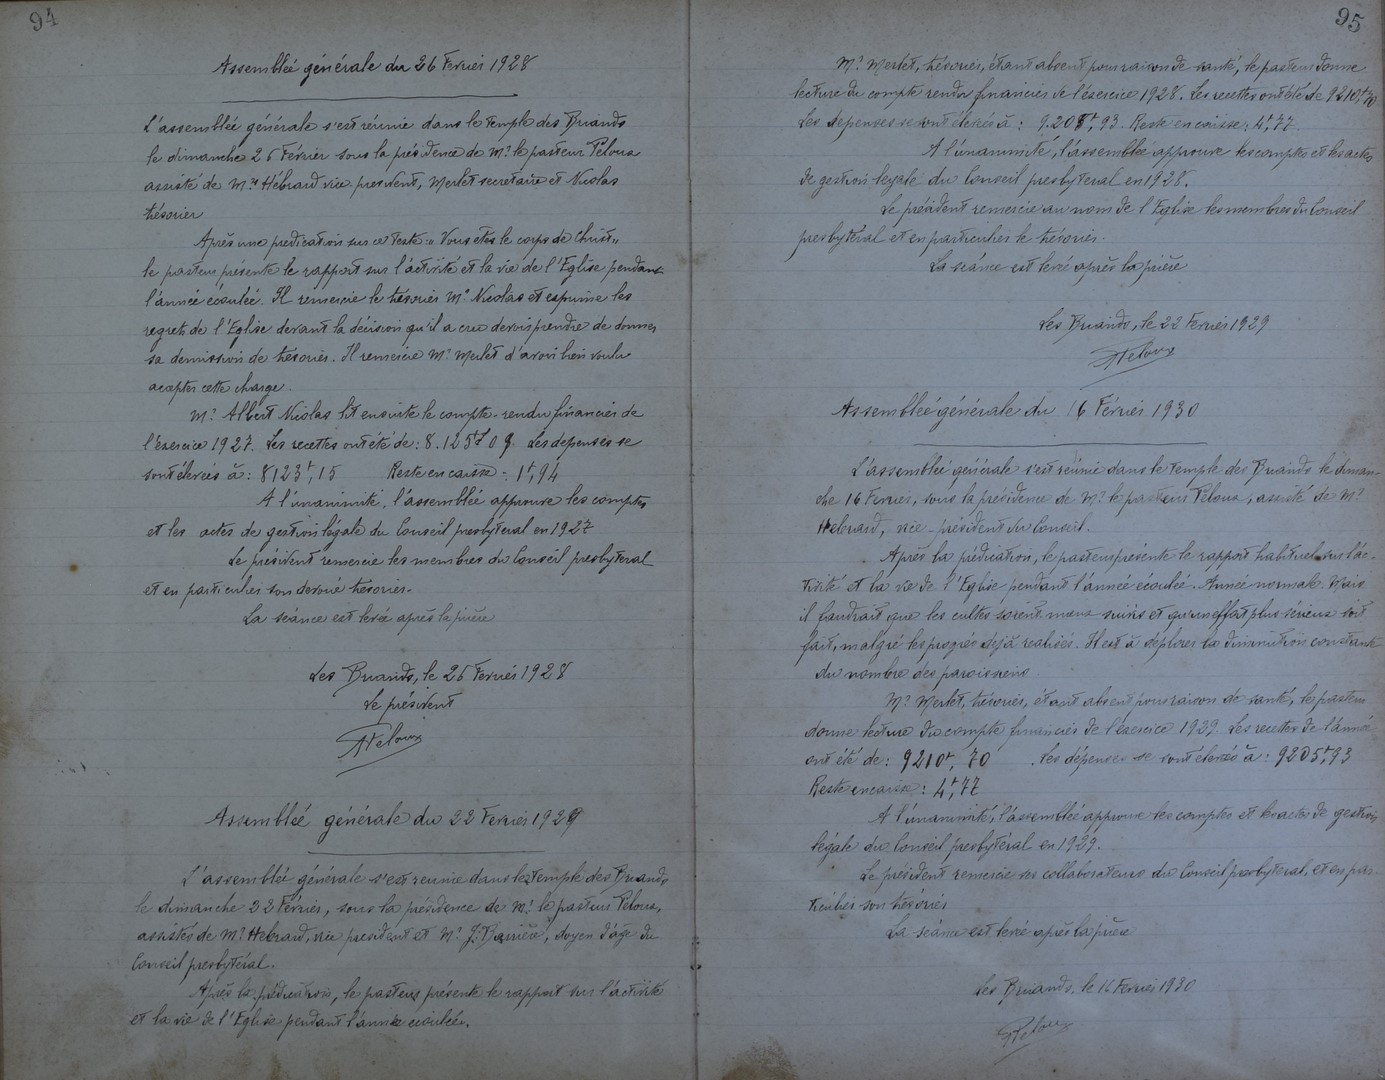 94
Assemblée générale du 26 Fevrier 1928
L'assemblée générale s'est réunie dans le temple des Briands
le dimanche 26 Février sous la présidence de Mr le pasteur Peloux
assisté de Mrs Hébrard vice president, Merlet secretaire et Nicolas
trésorier
Après une predication sur ce texte: " Vous êtes le corps de Christ "
le pasteur présente le rapport sur l'activité et la vie de l'Eglise pendant
l'année écoulée. Il remercie le trésorier Mr Nicolas et exprime les
regrets de l'Eglise devant la décision qu'il a cru devoir prendre de donner
sa demission de trésorier. Il remercie Mr Merlet d'avoir bien voulu
accepter cette charge.
Mr Albert Nicolas lit ensuite le compte-rendu financier de
l'exercice 1927. Les recettes ont été de: 8.125f 09 Les dépenses se
sont élevées à: 8123f,15 Reste en caisse: 1f,94
A l'unanimité, l'assemblée approuve les comptes
et les actes de gestion légale du Conseil presbyteral en 1927
Le président remercie les membres du Conseil presbyteral
et en particulier son dévoué trésorier.
La séance est levée après la prière
Les Briands, le 26 Fevrier 1928
Le président
APeloux
Assemblée générale du 22 Fevrier 1929
L'assemblée générale s'est reunie dans le temple des Briands
le dimanche 22 Février, sous la présidence de Mr le pasteur Peloux,
assisté de Mr Hebrard, vice president et Mr J. Barrière, doyen d'âge du
Conseil presbytéral.
Après la prédication, le pasteur présente le rapport sur l'activité
et la vie de l'Eglise pendant l'année écoulée.
95
Mr Merlet, trésorier, étant absent pour raison de santé, le pasteur donne
lecture du compte rendu financier de l'exercice 1928. Les recettes ont été de 9210,f70
Les depenses se sont élevées à: 9.205f,93 Reste en caisse: 4f,77
A l'unanimité, l'assemblée approuve les comptes et les actes
de gestion légale du Conseil presbyteral en 1928.
Le président remercie au nom de l'Eglise les membres du Conseil
presbytéral et en particulier le trésorier.
La séance est levée après la prière
Les Briands, le 22 Fevrier 1929
APeloux
Assemblée générale du 16 Février 1930
L'assemblée générale s'est réunie dans le temple des Briands le diman-
che 16 Fevrier, sous la présidence de Mr le pasteur Peloux, assisté de Mr
Hebrard, vice-président du Conseil.
Après la prédication, le pasteur présente le rapport habituel sur l'ac-
tivité et la vie de l'Eglise pendant l'année écoulée. Année normale. Mais
il faudrait que les cultes soient mieux suivis et qu'un effort plus sérieux soit
fait, malgré les progrès déjà realisés. Il est à déplorer la diminution constante
du nombre des paroissiens
Mr Merlet, trésorier, étant absent pour raison de santé, le pasteur
donne lecture du compte financier de l'exercice 1929. Les recettes de l'année
ont été de: 9210f, 70 . Les dépenses se sont élevées à: 9205f,93
Reste en caisse: 4f,77
A l'unanimité, l'assemblée approuve les comptes et les actes de gestion
légale du Conseil presbytéral en 1929.
Le président remercie ses collaborateurs du Conseil presbytéral, et en par-
ticulier son trésorier
La séance est levée après la prière
Les Briands, le 16 Fevrier 1930
APeloux